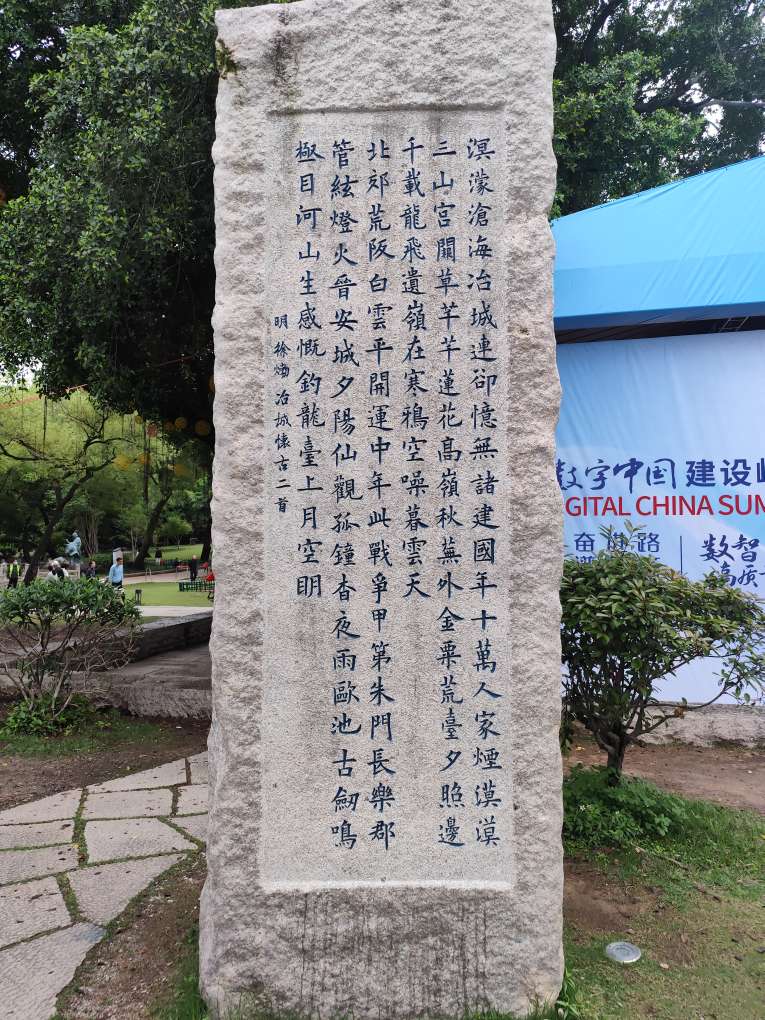 溟濛滄海冶城連卻憶無諸建國年十萬人家煙漠漠
三山宮闕草芊芊蓮花高嶺秋蕪外金粟荒臺夕照邊
千載龍飛遺嶺在寒鴉空噪暮雲天
北郊荒阪白雲平開運中年此戰爭甲第朱門長樂郡
管絃燈火晉安城夕陽仙觀孤鐘杳夜雨歐池古劒鳴
極目河山生感慨釣龍臺上月空明
明徐𤊹冶城懷古二首
数字中国建设峰
GITAL CHINA SUM
奋进路
数智
高质